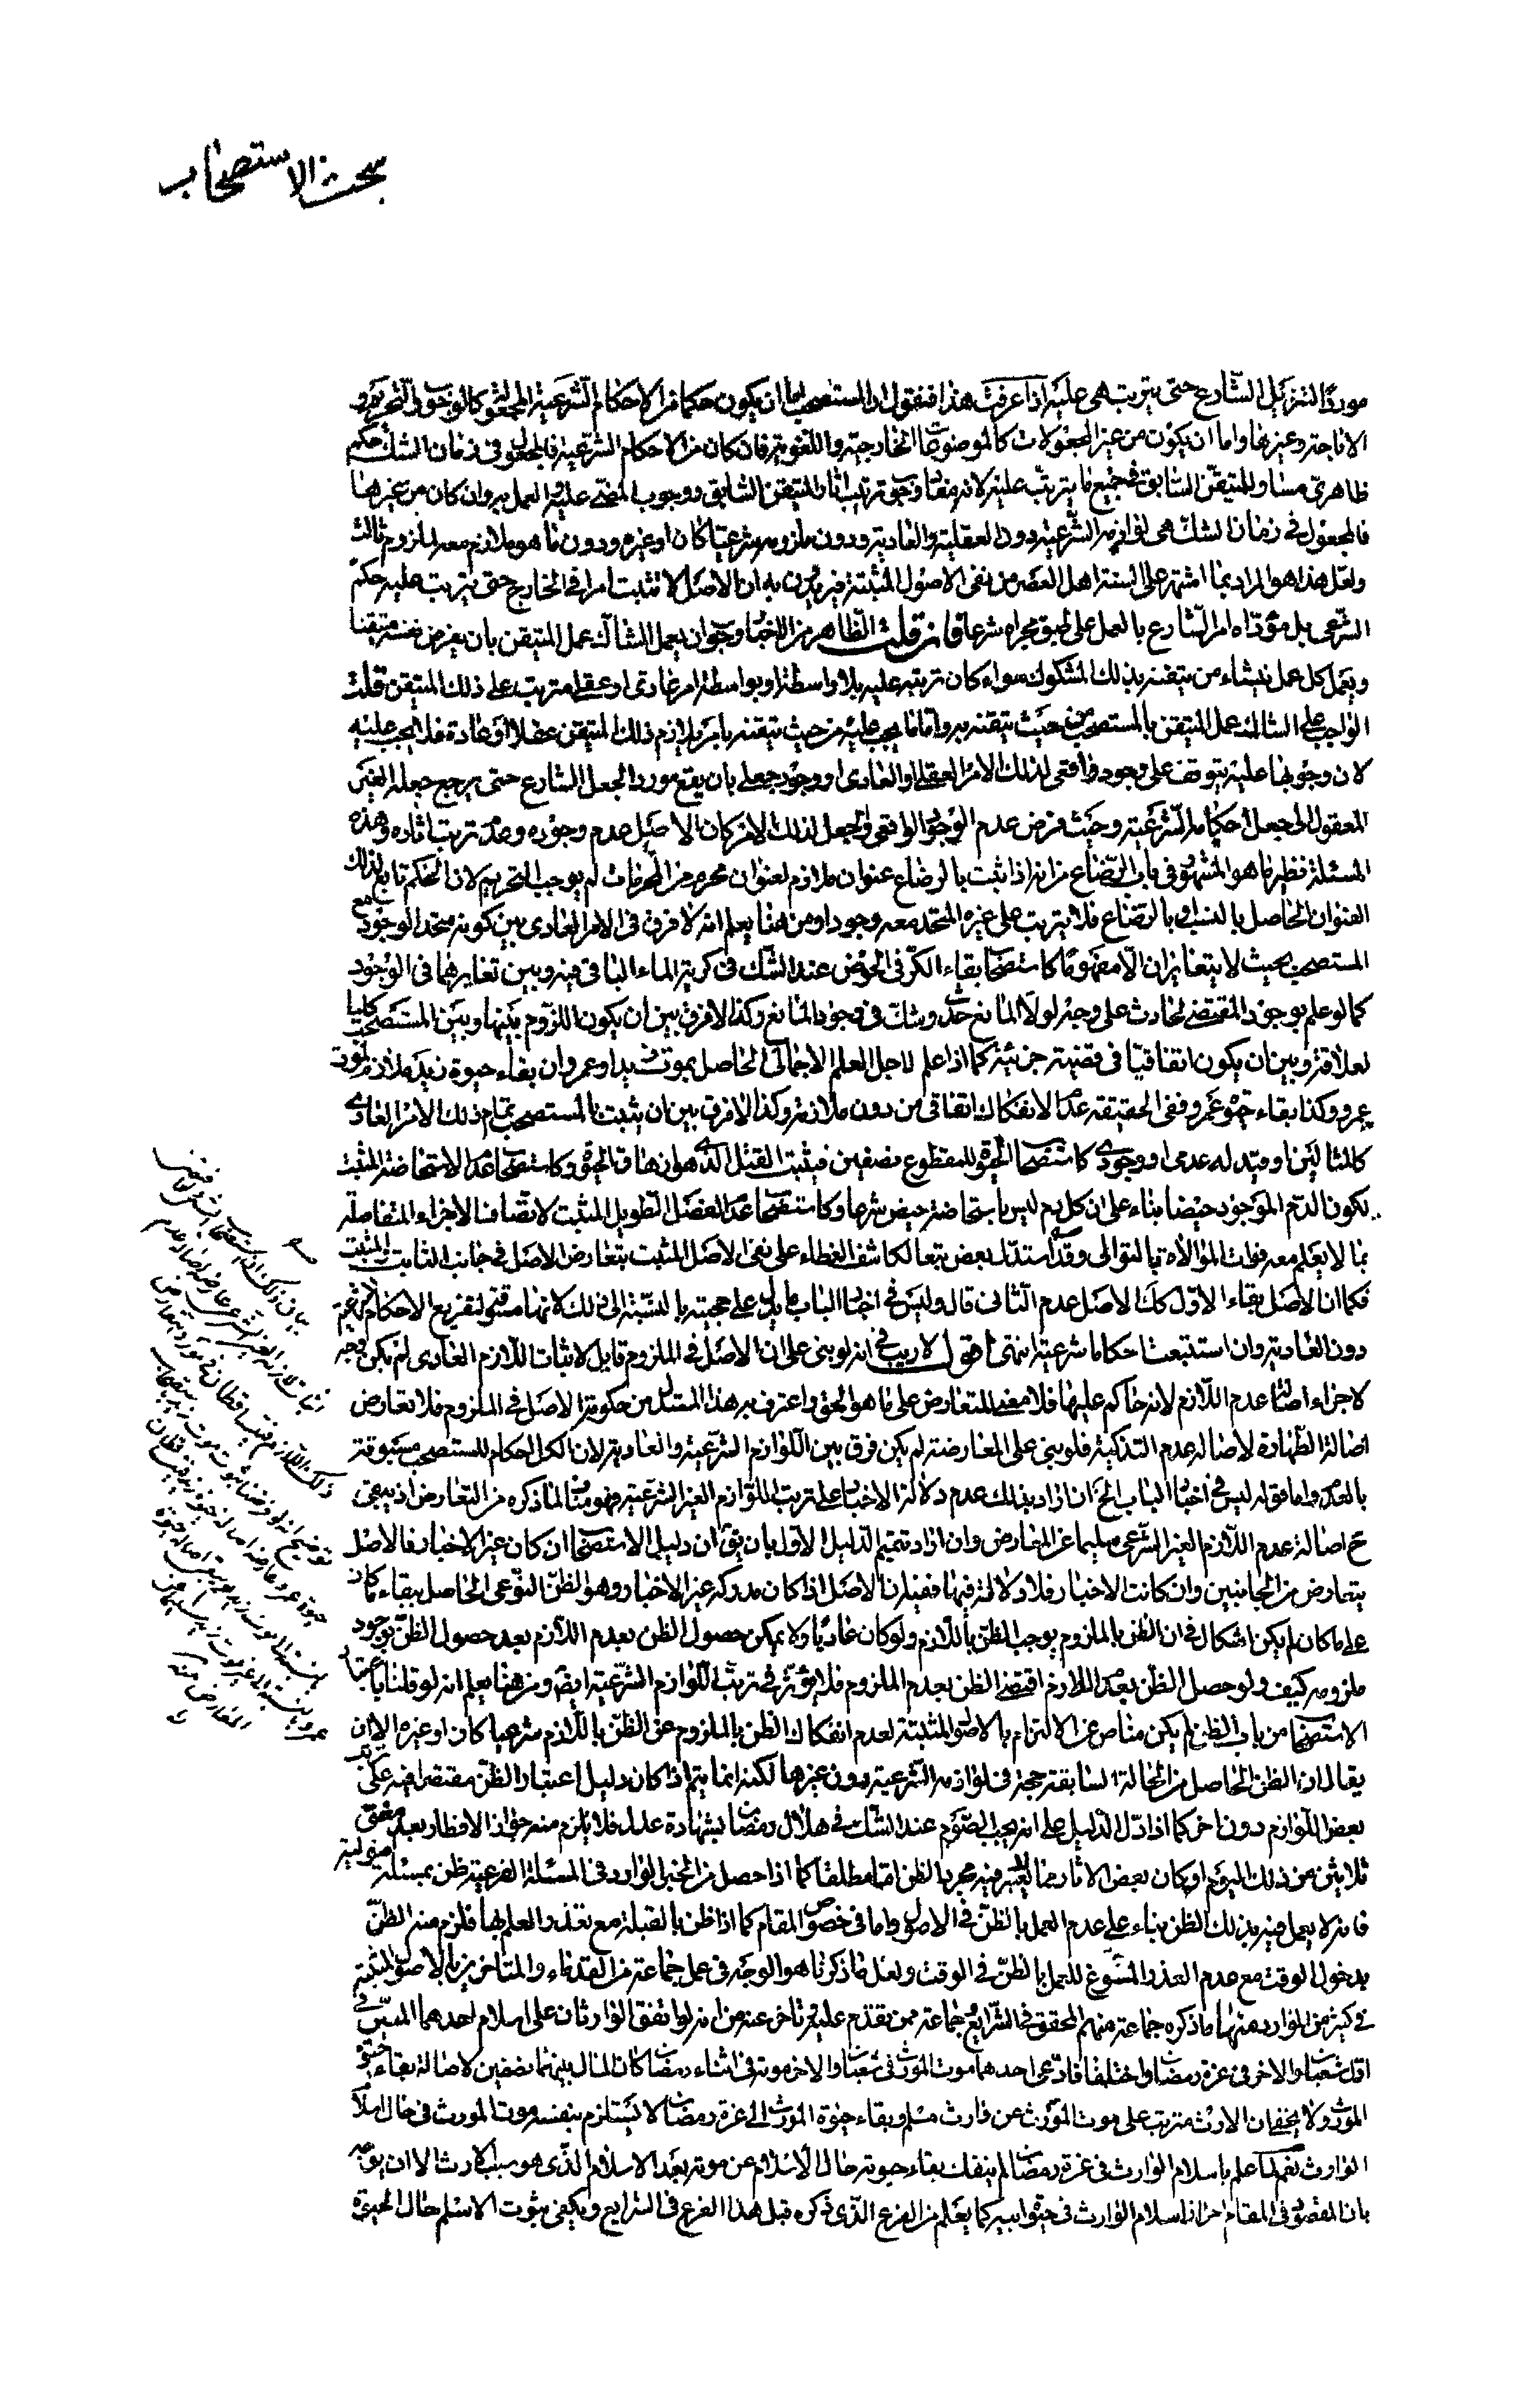 مبحث الاستصحاب
موردًا لتنزيل الشارع حتى يترتب هى عليه اذا عرفت هذا فنقول ان المستصحب اما ان يكون حكما من الاحكام الشرعية المجعولة كالوجوب والتحريم و
الاباحة وغيرها واما ان يكون من غير المجعولات كالموضوعات الخارجية واللغوية فان كان من الاحكام الشرعية فالمجعول فى زمان الشك حكم
ظاهرى مساو للمتيقن السابق فى جميع ما يترتب عليه لانه مفاد وجوب ترتيب اثار المتيقن السابق ووجوب المضى عليه والعمل به وان كان من غيرها
فالمجعول فى زمان الشك هى لوازمه الشرعية دون العقلية والعادية ودون ملزومه شرعيا كان او غيره ودون ما هو ملازم معه لملزوم ثالث
ولعل هذا هو المراد بما اشتهر على السنة اهل العصر من نفى الاصول المثبتة فيريدون به ان الاصل لا تثبت امرا فى الخارج حتى يترتب عليه حكمه
الشرعى بل مؤداه امر الشارع بالعمل على طبق مجراه شرعا فان قلت الظاهر من الاخبار وجوب ان يعمل الشاك عمل المتيقن بان يفرض نفسه متيقنا
ويعمل كل عمل ينشاء من تيقنه بذلك المشكوك سواء كان ترتبه عليه بلا واسطة او بواسطة امر عادى او عقلى مترتب على ذلك المتيقن قلت
الواجب على الشاك عمل المتيقن بالمستصحب من حيث تيقنه به واما ما يجب عليه من حيث تيقنه بامر يلازم ذلك المتيقن عقلا او عادة فلا يجب عليه
لان وجوبها عليه يتوقف على وجود واقعى لذلك الامر العقلى او العادى او وجود جعلى بان يقع موردا لجعل الشارع حتى يرجع جعله الغير
المعقول الى جعل احكامه الشرعية وحيث فرض عدم الوجود الواقعى والجعلى لذلك الامر كان الاصل عدم وجوده وعدم ترتب اثاره وهذه
المسئلة نظير ما هو المشهور فى باب الرضاع من انه اذا ثبت بالرضاع عنوان ملازم لعنوان محرم من المحرمات لم يوجب التحريم لان الحكم تابع لذلك
العنوان الحاصل بالنسب او بالرضاع فلا يترتب على غيره المتحد معه وجودا ومن هنا يعلم انه لا فرق فى الامر العادى بين كونه متحد الوجود مع
المستصحب بحيث لا يتغايران الا مفهوما كاستصحاب بقاء الكر فى الحوض عند الشك فى كرية الماء الباقى فيه وبين تغايرهما فى الوجود
كما لو علم بوجود المقتضى لحادث على وجه لولا المانع حدث وشك فى وجود المانع وكذا لا فرق بين ان يكون اللزوم بينها وبين المستصحب كليا
لعلاقة وبين ان يكون اتفاقيا فى قضية جزئية كما اذا علم لاجل العلم الاجمالى الحاصل بموت زيد او عمرو ان بقاء حيوة زيد ملازم لموت
عمرو وكذا بقاء حيوة عمرو ففى الحقيقة عدم الانفكاك اتفاقى من دون ملازمة وكذا لا فرق بين ان يثبت بالمستصحب تمام ذلك الامر العادى
كالمثالين او قيد له عدمى او وجودى كاستصحاب الحيوة للمقطوع نصفين فيثبت القتل الذى هو ازهاق الحيوة وكاستصحاب عدم الاستحاضة المثبت
لكون الدم الموجود حيضا بناء على ان كل دم ليس باستحاضة حيض شرعا وكاستصحاب عدم الفصل الطويل المثبت لاتصاف الاجزاء المتفاصلة
بما لا يعلم معه فوات الموالاة بالتوالى وقد استدل بعض تبعا لكاشف الغطاء على نفى الاصل المثبت بتعارض الاصل فى جانب الثابت والمثبت
فكما ان الاصل بقاء الاول كك الاصل عدم الثانى قال وليس فى اخبار الباب ما يدل على حجيته بالنسبة الى ذلك لانها مسوقة لتفريع الاحكام الشرعية
دون العادية وان استتبعت احكاما شرعية انتهى اقول لا ريب فى انه لو بنى على ان الاصل فى الملزوم قابل لاثبات اللازم العادى لم يكن وجه
لاجراء اصالة عدم اللازم لانه حاكم عليها فلا معنى للتعارض على ما هو الحق واعترف به هذا المستدل من حكومة الاصل فى الملزوم فلا تعارض
اصالة الطهارة لاصالة عدم التذكية فلو بنى على المعارضة لم يكن فرق بين اللوازم الشرعية والعادية لان الكل احكام للمستصحب مسبوقة
بالعدم واما قوله ليس فى اخبار الباب الخ ان اراد بذلك عدم دلالة الاخبار على ترتب اللوازم الغير الشرعية فهو مناف لما ذكره من التعارض اذ يبقى
ح اصالة عدم اللازم الغير الشرعى سليما عن المعارض وان اراد تتميم الدليل الاول بان يق ان دليل الاستصحاب ان كان غير الاخبار فالاصل
يتعارض من الجانبين وان كانت الاخبار فلا دلالة فيها ففيه ان الاصل اذا كان مدركه غير الاخبار وهو الظن النوعى الحاصل ببقاء ما كان
على ما كان لم يكن اشكال فى ان الظن بالملزوم يوجب الظن باللازم ولو كان عاديا ولا يمكن حصول الظن بعدم اللازم بعد حصول الظن بوجود
ملزومه كيف ولو حصل الظن بعدم اللازم اقتضى الظن بعدم الملزوم فلا يؤثر فى ترتب اللوازم الشرعية ايضا ومن هنا يعلم انه لو قلنا باعتبار
الاستصحاب من باب الظن لم يكن مناص عن الالتزام بالاصول المثبتة لعدم انفكاك الظن بالملزوم عن الظن باللازم شرعيا كان او غيره الا ان
يقال ان الظن الحاصل من الحالة السابقة حجة فى لوازمه الشرعية دون غيرها لكنه انما يتم اذا كان دليل اعتبار الظن مقتصرا فيه على ترتب
بعض اللوازم دون اخر كما اذا دل الدليل على انه يجب الصوم عند الشك فى هلال رمضان بشهادة عدل فلا يلزم منه جواز الافطار بعد مضى
ثلاثين من ذلك اليوم او كان بعض الاثار مما لا يعتبر فيه مجرد الظن اما مطلقا كما اذا حصل من الخبر الوارد فى المسئلة الفرعية ظن بمسئلة اصولية
فانه لا يعمل فيه بذلك الظن بناء على عدم العمل بالظن فى الاصول واما فى خصوص المقام كما اذا ظن بالقبلة مع تعذر العلم بها فلزم منه الظن
بدخول الوقت مع عدم العذر المسوغ للعمل بالظن فى الوقت ولعل ما ذكرنا هو الوجه فى عمل جماعة من القدماء والمتاخرين بالاصول المثبتة
فى كثير من الموارد منها ما ذكره جماعة منهم المحقق فى الشرايع وجماعة ممن تقدم عليه وتاخر عنه من انه لو اتفق الوارثان على اسلام احدهما المعين فى
اول شعبان والاخر فى غرة رمضان واختلفا فادعى احدهما موت المورث فى شعبان والاخر موته فى اثناء رمضان كان المال بينهما نصفين لاصالة بقاء حيوة
المورث ولا يخفى ان الارث مترتب على موت المورث عن وارث مسلم وبقاء حيوة المورث الى غرة رمضان لا يستلزم بنفسه موت المورث فى حال اسلام
الوارث نعم لما علم باسلام الوارث فى غرة رمضان لم ينفك بقاء حيوته حال الاسلام عن موته بعد الاسلام الذى هو سبب الارث الا ان يوجه
بان المقصود فى المقام احراز اسلام الوارث فى حيوة ابيه كما يعلم من الفرع الذى ذكره قبل هذا الفرع فى الشرايع ويكفى ثبوت الاسلام حال الحيوة